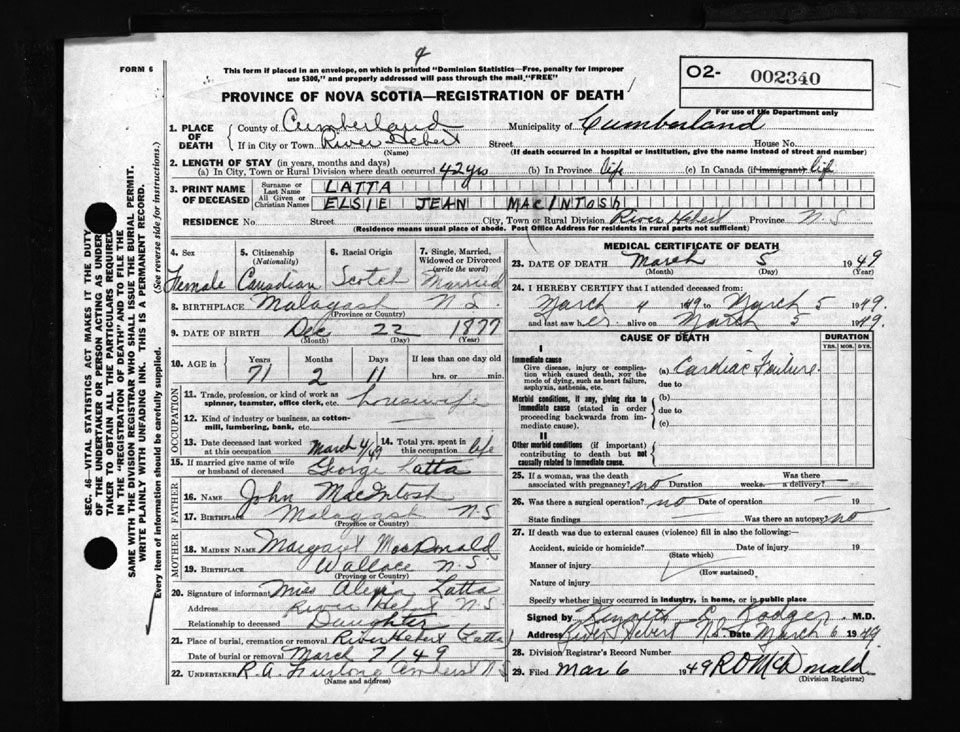 4
FORM 6
This form if placed in an envelope, on which is printed "Dominion Statistics—Free, penalty for improper
use $300," and properly addressed will pass through the mail "FREE"
PROVINCE OF NOVA SCOTIA—REGISTRATION OF DEATH
O2- 002340
For use of the Department only
1. PLACE OF DEATH
County of Cumberland Municipality of Cumberland
If in City or Town River Hebert Street House No.
(Name) (If death occurred in a hospital or institution, give the name instead of street and number)
2. LENGTH OF STAY (in years, months and days)
(a) In City, Town or Rural Division where death occurred 42 yrs (b) In Province life (c) In Canada (if immigrant) life
3. PRINT NAME OF DECEASED
Surname or Last Name LATTA
All Given or Christian Names ELSIE JEAN MACINTOSH
RESIDENCE No. Street City, Town or Rural Division River Hebert Province N S
(Residence means usual place of abode. Post Office Address for residents in rural parts not sufficient)
4. Sex
Female
5. Citizenship
(Nationality)
Canadian
6. Racial Origin
Scotch
7. Single, Married,
Widowed or Divorced
(write the word)
Married
8. BIRTHPLACE Malagash N S.
(Province or Country)
9. DATE OF BIRTH Dec 22 1877
(Month) (Day) (Year)
10. AGE in
Years Months Days If less than one day old
71 2 11 hrs. or min.
OCCUPATION
11. Trade, profession, or kind of work as
spinner, teamster, office clerk, etc. housewife
12. Kind of industry or business, as cotton-
mill, lumbering, bank, etc.
13. Date deceased last worked
at this occupation March 4/49
14. Total yrs. spent in
this occupation life
15. If married give name of wife
or husband of deceased George Latta
FATHER
16. NAME John MacIntosh
17. BIRTHPLACE Malagash N S
(Province or Country)
MOTHER
18. MAIDEN NAME Margaret MacDonald
19. BIRTHPLACE Wallace N. S.
(Province or Country)
20. Signature of informant Miss Latta
Address River Hebert N S
Relationship to deceased Daughter
21. Place of burial, cremation or removal River Hebert (Latta)
Date of burial or removal March 7/49
22. UNDERTAKER R. A. Furlong Amherst N S
(Name and address)
MEDICAL CERTIFICATE OF DEATH
23. DATE OF DEATH March 5 1949
(Month) (Day) (Year)
24. I HEREBY CERTIFY that I attended deceased from:
March 4 1949 to March 5 1949.
and last saw her alive on March 5 1949.
CAUSE OF DEATH DURATION
YRS. MOS. DYS.
I
Immediate cause
Give disease, injury or complica-
tion which caused death, not the
mode of dying, such as heart failure,
asphyxia, asthenia, etc.
(a) Cardiac Failure.
due to
Morbid conditions, if any, giving rise to
immediate cause (stated in order
proceeding backwards from im-
mediate cause).
(b)
due to
(c)
II
Other morbid conditions (if important)
contributing to death but not
causally related to immediate cause.
25. If a woman, was the death
associated with pregnancy? no Duration weeks. Was there
a delivery?
26. Was there a surgical operation? no Date of operation 19
State findings Was there an autopsy? no
27. If death was due to external causes (violence) fill in also the following:—
Accident, suicide or homicide? Date of injury 19
(State which)
Manner of injury
(How sustained)
Nature of injury
Specify whether injury occurred in industry, in home, or in public place
Signed by Kenneth E. Rodger M.D.
Address River Hebert N.S. Date March 6 1949
28. Division Registrar's Record Number
29. Filed Mar 6 1949 R O McDonald
(Division Registrar)
SEC. 46—VITAL STATISTICS ACT MAKES IT THE DUTY
OF THE UNDERTAKER OR PERSON ACTING AS UNDER-
TAKER TO OBTAIN ALL THE PARTICULARS REQUIRED
IN THE "REGISTRATION OF DEATH" AND TO FILE THE
SAME WITH THE DIVISION REGISTRAR WHO SHALL ISSUE THE BURIAL PERMIT.
WRITE PLAINLY WITH UNFADING INK. THIS IS A PERMANENT RECORD.
Every item of information should be carefully supplied. (See reverse side for instructions.)